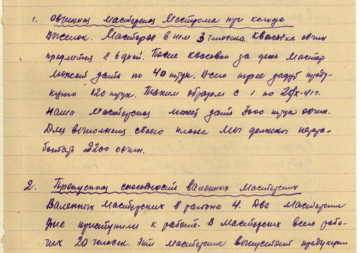 1. Овчинная мастерская Местпрома при колхозе
Мастеров в нем 3 человека. Квасовка овчин
продлится 6 дней. После квасовки за день мастер
может дать по 40 штук. Всего
120 штук. Таким образом с 1 по
наша мастерская может дать 3000 штук овчин.
Для выполнения своего плана мы должны
2200 овчин.
2. Пропускная способность валенных мастерских
Валенных мастерских в районе 4. Две мастерские
уже приступили к работе. В мастерских всего рабо-
чих 20 человек. Эти мастерские выпускают продукции